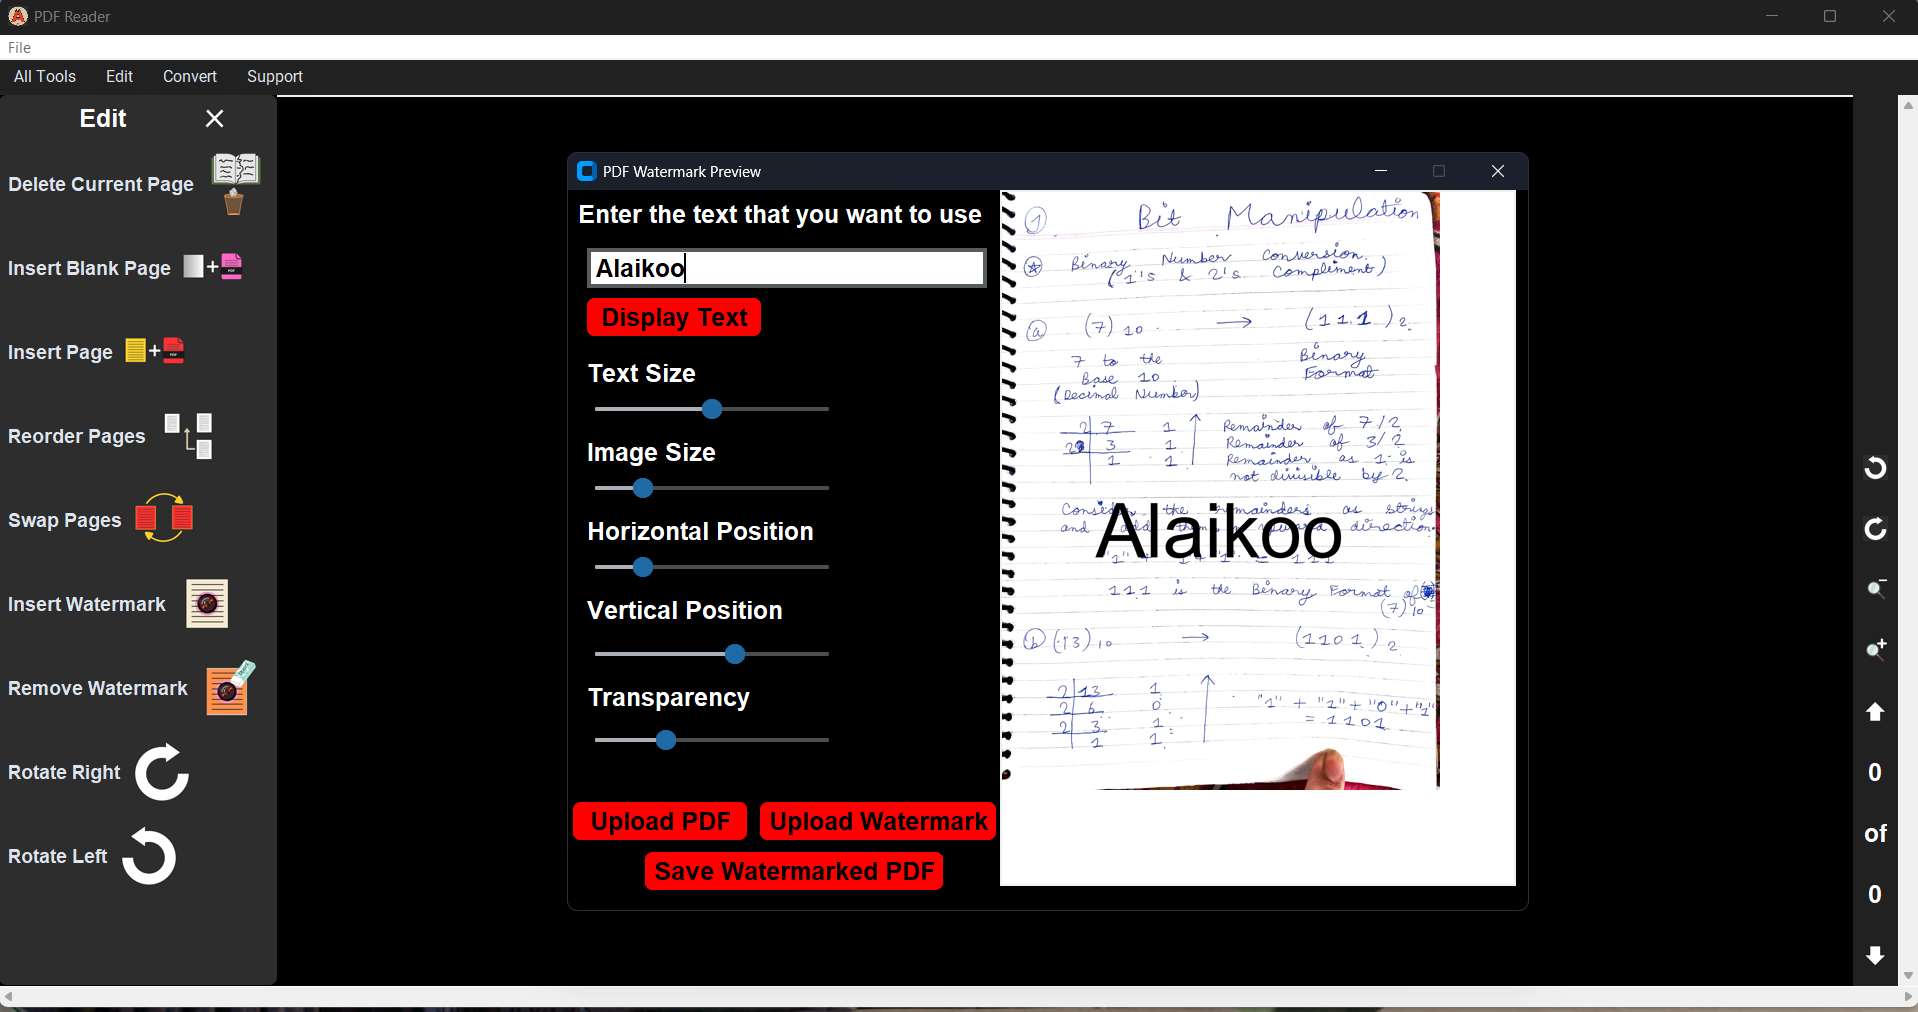 PDF Reader
File
All Tools Edit Convert Support
Edit
Delete Current Page
Insert Blank Page
Insert Page
Reorder Pages
Swap Pages
Insert Watermark
Remove Watermark
Rotate Right
Rotate Left
PDF Watermark Preview
Enter the text that you want to use
Alaikoo
Display Text
Text Size
Image Size
Horizontal Position
Vertical Position
Transparency
Upload PDF Upload Watermark
Save Watermarked PDF
1 Bit Manipulation
Binary Number Conversion
(1's & 2's Compliment)
a (7) 10 → (111)2
7 to the Binary
Base 10 Format
(Decimal Number)
2 7 1 Remainder of 7/2
2 3 1 Remainder of 3/2
1 1 Remainder as 1 is
not divisible by 2.
Consider the remainders as strings
and add them upward direction.
Alaikoo
"1" + 1 + "1" = 111
111 is the Binary Format of
(7)10
b (13)10 → (1101)2
2 13 1
2 6 0 "1" + "1" + "0" + "1"
2 3 1 = 1101
1 1
0
of
0